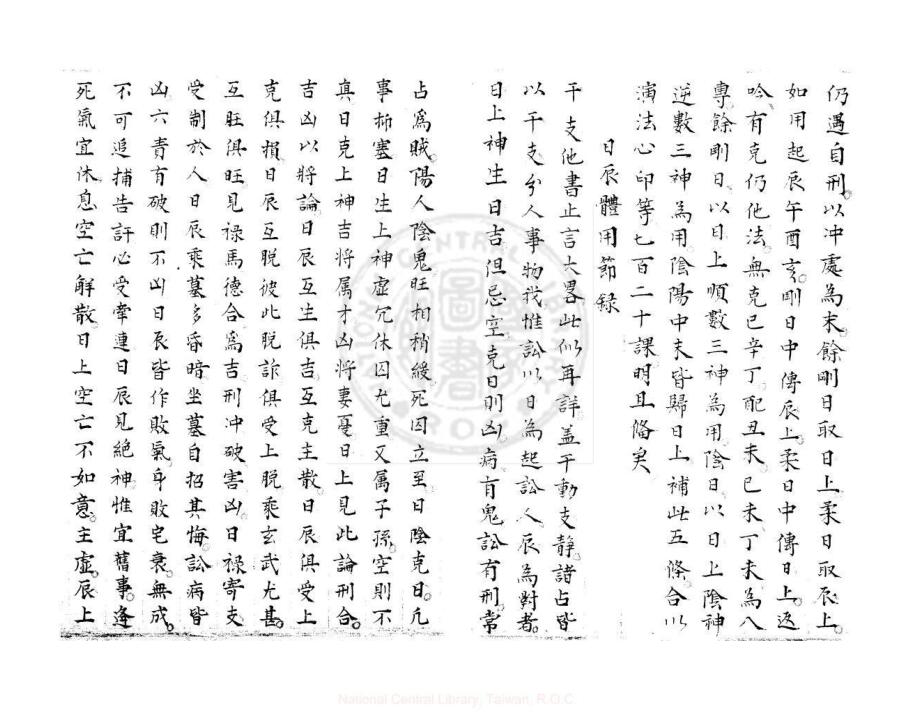 仍遇自刑以冲處為末餘剛日取日上柔日取辰上
如用起辰午酉亥剛日中傳辰上柔日中傳日上返
吟有克仍他法無克巳辛丁配丑未巳未丁未為八
專餘剛日以日上順數三神為用陰日以日上陰神
逆數三神為用陰陽中末皆歸日上補此五條合以
演法心印等七百二十課明且俻矣
日辰體用節録
干支他書止言大畧此似再詳盖干動支静諸占皆
以干支分人事物我惟訟以日為起訟人辰為對者
日上神生日吉但忌空克日則凶病有鬼訟有刑常
占為賊陽人陰鬼旺相稍緩死囚立至日陰克日凢
事栁塞日生上神虚冗休囚尤重又属子孫空則不
真日克上神吉将属才凶将妻憂日上見此論刑合
吉凶以將論日辰互生俱吉互克主散日辰俱受上
克俱損日辰互脱彼此脱詐俱受上脱乘玄武尤甚
互旺俱旺見禄馬德合為吉刑冲破害凶日禄寄支
受制於人日辰乘墓多昏暗坐墓自招其悔訟病皆
凶六責有破則不凶日辰皆作敗氣身敗宅衰無成
不可追捕告訐心受牽連日辰見絶神惟宜舊事逢
死氣宜休息空亡解散日上空亡不如意主虚辰上
National Central Library, Taiwan, R.O.C.